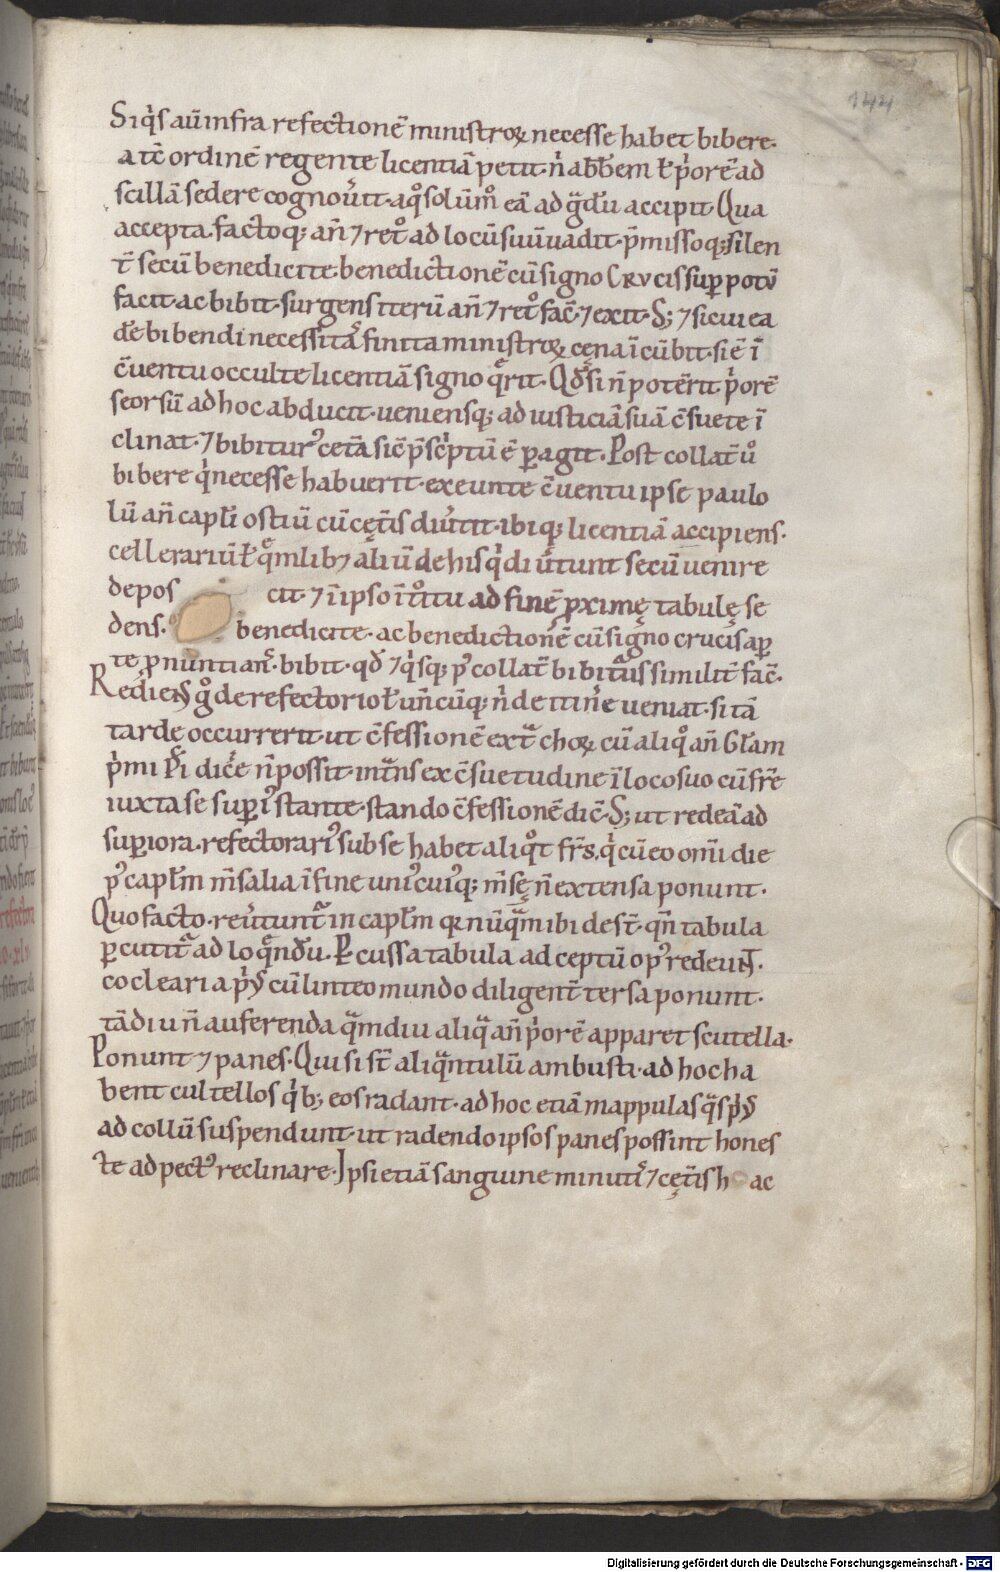 144
Siq̇s aū infra refectionē ministroꝝ necesse habet bibere·
a tē ordinē regente licentiā petit· n̄ abb̄em ł p̓orē ad
scillā sedere cognou̓it· aq̊ solūm̊ eā ad g̃dū accipit· Qua
accepta· factoq; an̄ ⁊ ret̊ ad locū suū uadit· p̄missoq; silen
t̄ secū benedicite benedictionē cū signo crucis suꝑ potū
facit· ac bibit· surgens iterū an̄ ⁊ ret̊ fac̄· ⁊ exit· S; ⁊ si cui ea
dē bibendi necessitas finita ministroꝝ cęna īcūbit· si ē ī
c̄uentu occulte licentiā signo q̃rit· Qd̄ si n̄ potērit p̓orē
seorsū ad hoc abducit· ueniensq; ad iusticiā suā c̄suete ī
clinat· ⁊ bibitur᾽ cetā sic̄ p̄sc̓ptū ē ꝑagit· Post collat̄ ů
bibere q̓ necesse habuerit· exeunte c̄uentu ipse paulo
lū an̄ capłi ostiū cū cęt̄is diu̓tit· ibiq; licentiā accipiens·
cellerariū ł q̃mlib; aliū de his q̓ diu̓tunt secū uenire
depos cit· ⁊ ī ipso ītoitu ad finē ꝓximę tabulę se
dens· benedicite· ac benedictionē cū signo crucis aꝑ
te ꝓnuntians· bibit· qd̄ ⁊ q̓sq; p᾽ collat̄ bibit̃us similit̄ fac̄·
Rediens g̊ de refectorio ł un̄cūq; n̄ de itin̓e ueniat· si tā
tarde occurrerit· ut c̄fessionē ext̃ choꝝ cū aliq̊ an̄ Głam
p̓mi ps̄i dic̓e n̄ possit· int̃ns ex c̄suetudine ī loco suo cū fr̄e
iuxta se suꝑ īstante· stando c̄fessionē dic̄· S; ut redeā ad
suꝑiora· refectorari᾽ sub se habet aliq̊t fr̄s· q̓ cū eo om̄i die
p᾽ capłm m̄salia ī fine uni᾽cui᾽q; m̄sę n̄ extensa ponunt·
Quo facto· reu̓tunt̃ in capłm qꝛ nūq̃m ibi dest̄· qn̄ tabula
ꝑcutit̃ ad loq̃ndū· Ꝑcussa tabula ad ceptū op᾽ redeunt·
coclearia p̓s cū linteo mundo diligent̄ tersa ponunt·
tādiu n̄ auferenda q̃mdiu aliq̃ an̄ p̓orē apparet scutella·
Ponunt ⁊ panes· Qui si st̄ aliq̃ntulū ambusti· ad hoc ha
bent cultellos q̓b; eos radant· ad hoc etiā mappulas q̃s p̓s
ad collū suspendunt· ut radendo ipsos panes possint hones
te ad pect᾽ reclinare· Ipsi etiā sanguine minutis ⁊ cęt̄is h ac
Digitalisierung gefördert durch die Deutsche Forschungsgemeinschaft - DFG